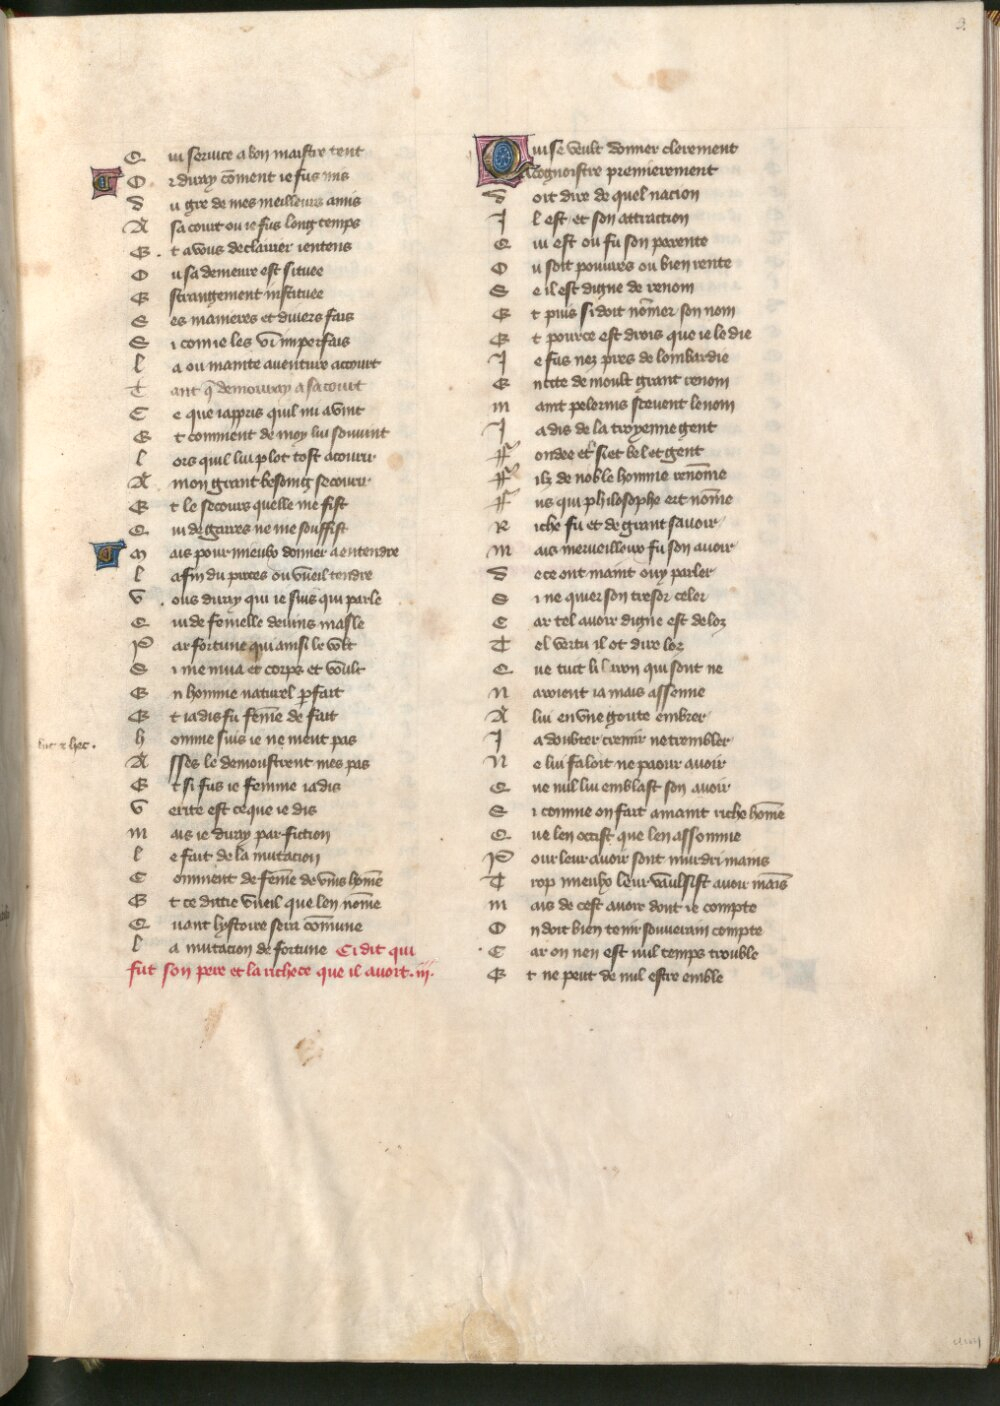 Qui service a bon maistre rent
Or diray cōment ie fus mis
Du gre de mes meilleurs amis
A sa court ou ie fus long temps
Et a vous declairier ientens
Ou sa demeure est situee
Estrangement instituee
Ses manieres et diuers fais
Si comie les vi imperfais
La ou mainte auenture acourt
Tant q̄ demouray a sa court
Ce que iappris quil mi auint
Et comment de moy lui souuint
Lors quil lui plot tost acourir
A mon grant besoing secourir
Et le secours quelle me fist
Qui de gaires ne me souffist
Mais pour mieulx donner a entendre
La fin du proces ou vueil tendre
Vous diray qui ie suis qui parle
Qui de femelle deuins masle
Par fortune qui ainsi le volt
Si me mua et corps et voult
En homme naturel pfait
Et iadis fu fēme de fait
homme suis ie ne ment pas
Asses le demonstrent mes pas
Et si fus ie femme iadis
Verite est ce que ie dis
mais ie diray par fiction
Le fait de la mutacion
Comment de fēme deuins hōme
Et ce dittie vueil que len nōme
Quant lystoire sera cōmune
La mutacion de fortune Ci dit qui
fut son pere et la richece que il auoit .iii.
hic et hec .
Qui se veult donner clerement
A cognoistre premierement
Doit dire de quel nacion
Il est et son attraction
Qui est ou fu son parente
Ou soit poures ou bien rente
Se il est digne de renom
Et puis si doit nōmer son nom
Et pource est drois que ie le die
Ie fus nez pres de lombardie
En cite de moult grant renom
maint pelerins sceuent le nom
Iadis de la troyenne gent
ffondee et siet bel et gent
ffilz de noble homme renōme
ffus qui philosophe ert nōme
Riche fu et de grant sauoir
mais merueilleux fu son auoir
De ce ont maint ouy parler
Si ne quier son tresor celer
Car tel auoir digne est de loz
Tel vertu il ot dire loz
Que tuit li larron qui sont ne
Naroient ia mais assenne
A lui en vne goute embler
Ia doubter cremir ne trembler
Ne lui faloit ne paour auoir
Que nul lui emblast son auoir
Si comme on fait amaint riche hōme
Que len occist que len assomme
Pour leur auoir sont murdri mains
Trop mieulx leur vaulsist auoir mains
mais de cest auoir dont ie compte
On doit bien tenir souuerain compte
Car on nen est nul temps trouble
Et ne peut de nul estre emble